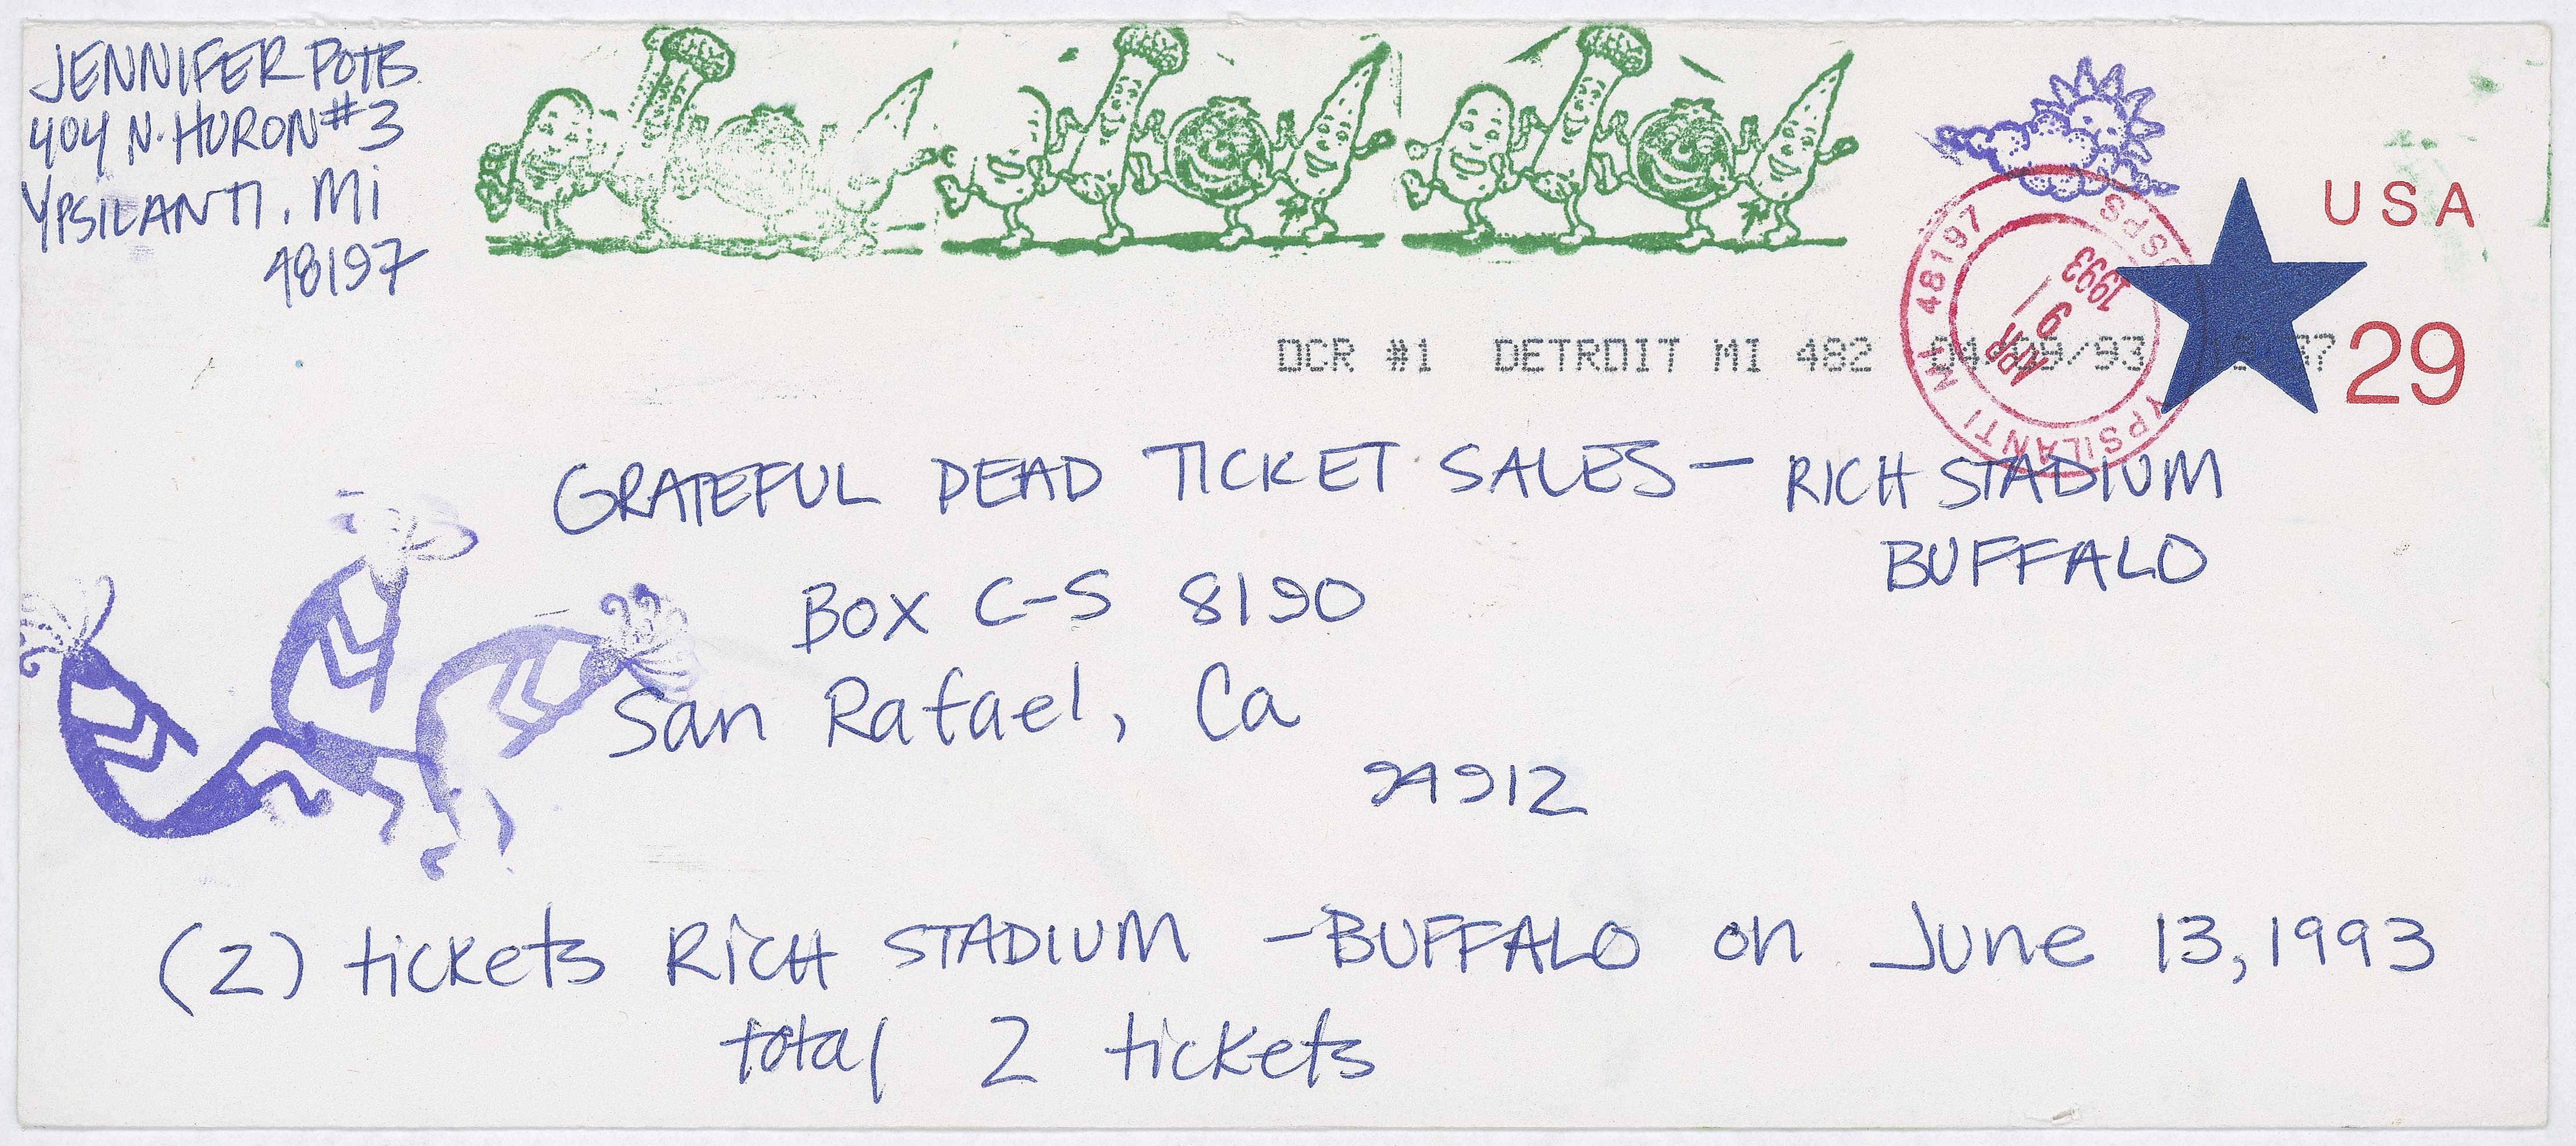 JENNIFER POTTS
404 N. HURON #3
YPSILANTI, Mi
48197
USA
29
YPSILANTI MI 48197
USPS
APR 9 1993
OCR #1 DETROIT MI 482 04/09/93
GRATEFUL DEAD TICKET SALES - RICH STADIUM
BUFFALO
Box C-S 8190
San Rafael, Ca
94912
(2) tickets RICH STADIUM - BUFFALO on June 13, 1993
total 2 tickets